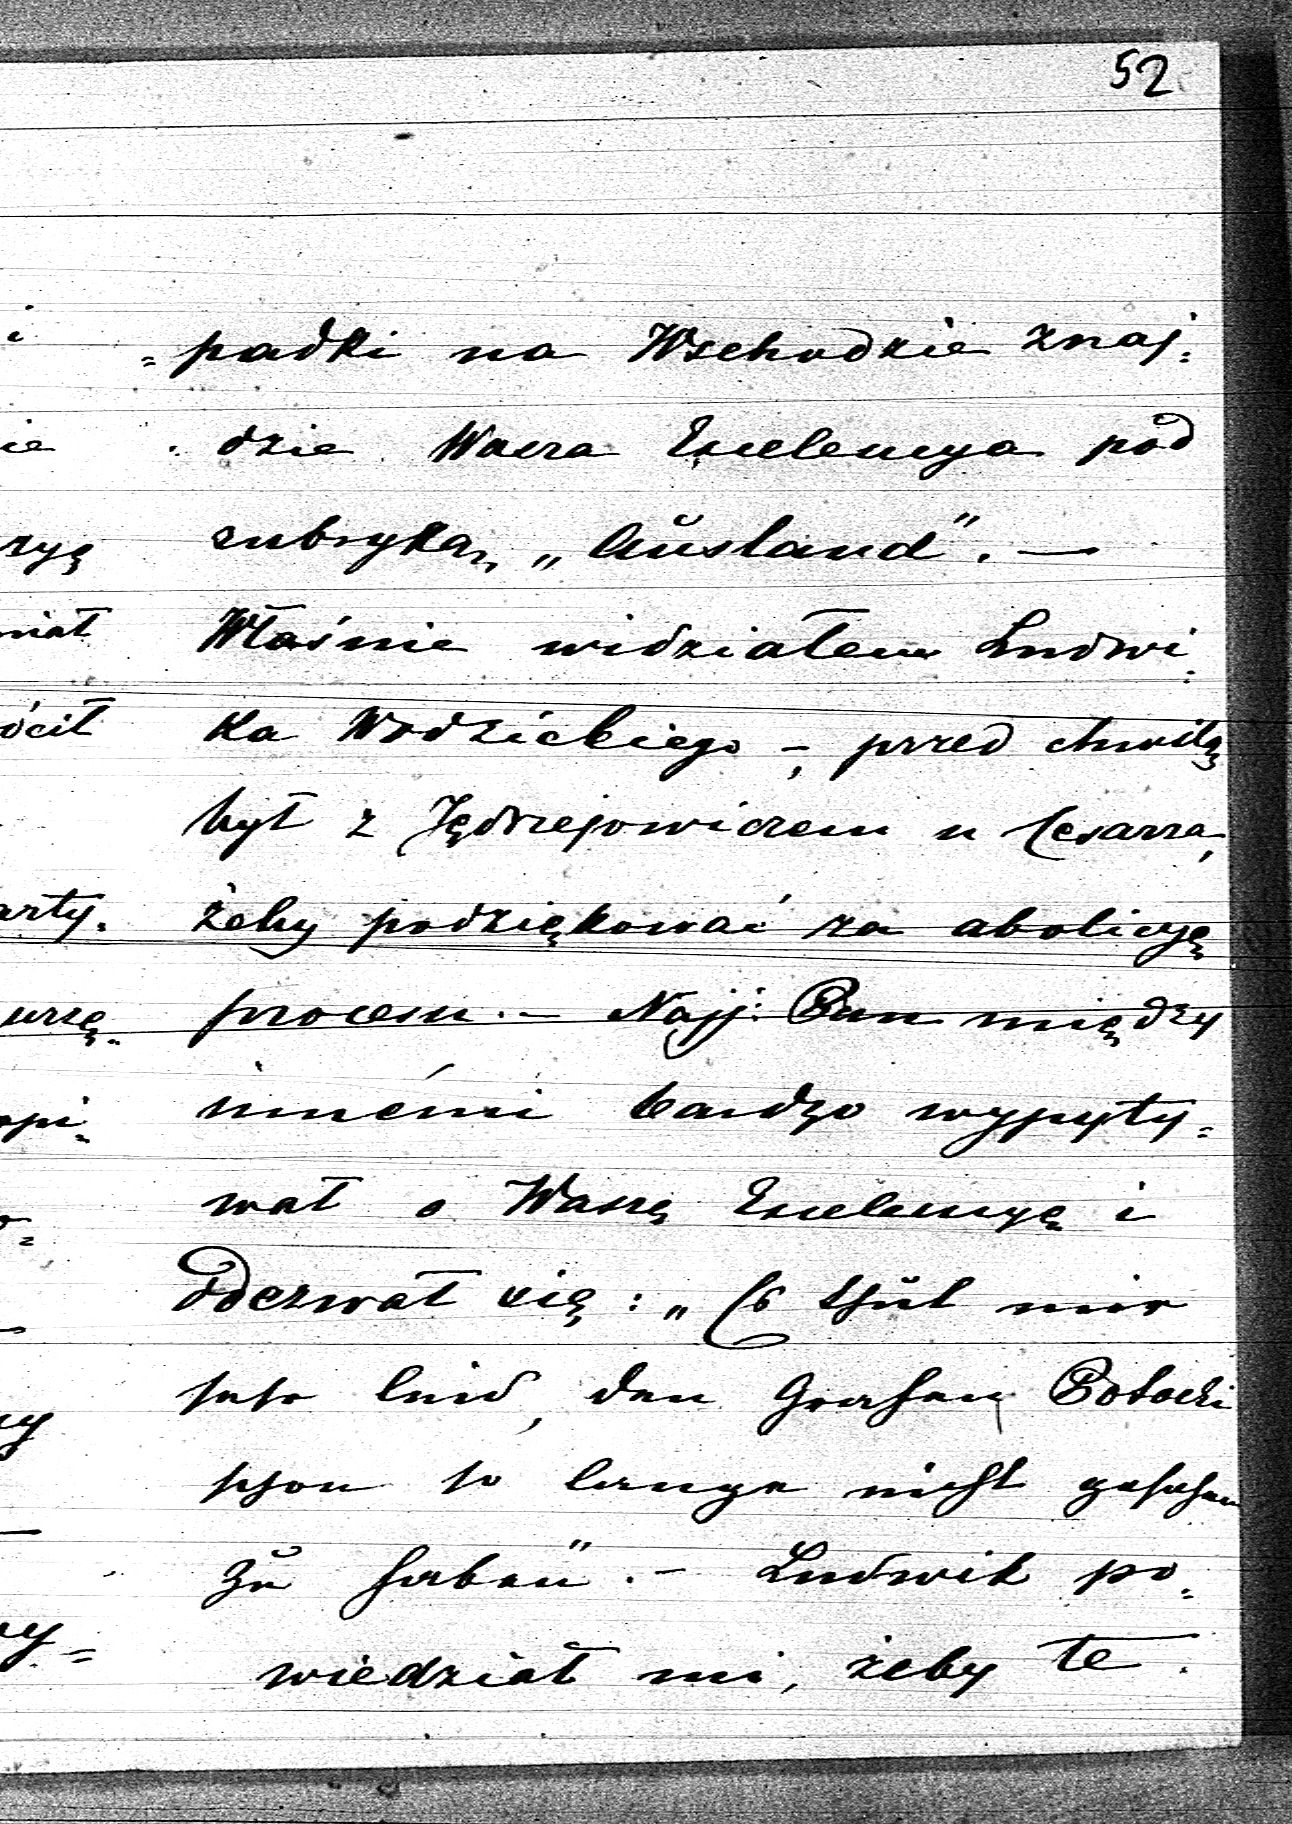 52
=padki na Wschodzie znaj=
dzie Wasza Excelencya pod
rubryką „Ausland”. —
Właśnie widziałem Ludwi=
ka Wodzickiego -, przed chwilą
był z Jędrzejowiczem u Cesarza,
żeby podziękować za abolicyę
procesu. - Najj: Pan między
innémi bardzo wypyty=
wał o Waszę Excelencyę i
odezwał się: „Es thut mir
sehr leid, den Grafen Potocki
schon so lange nicht gesehen
zu haben”. - Ludwik po=
wiedział mi, żeby te
i
ie
ryę
niał
ócił
arty.
urzę.
opi=
y
y=